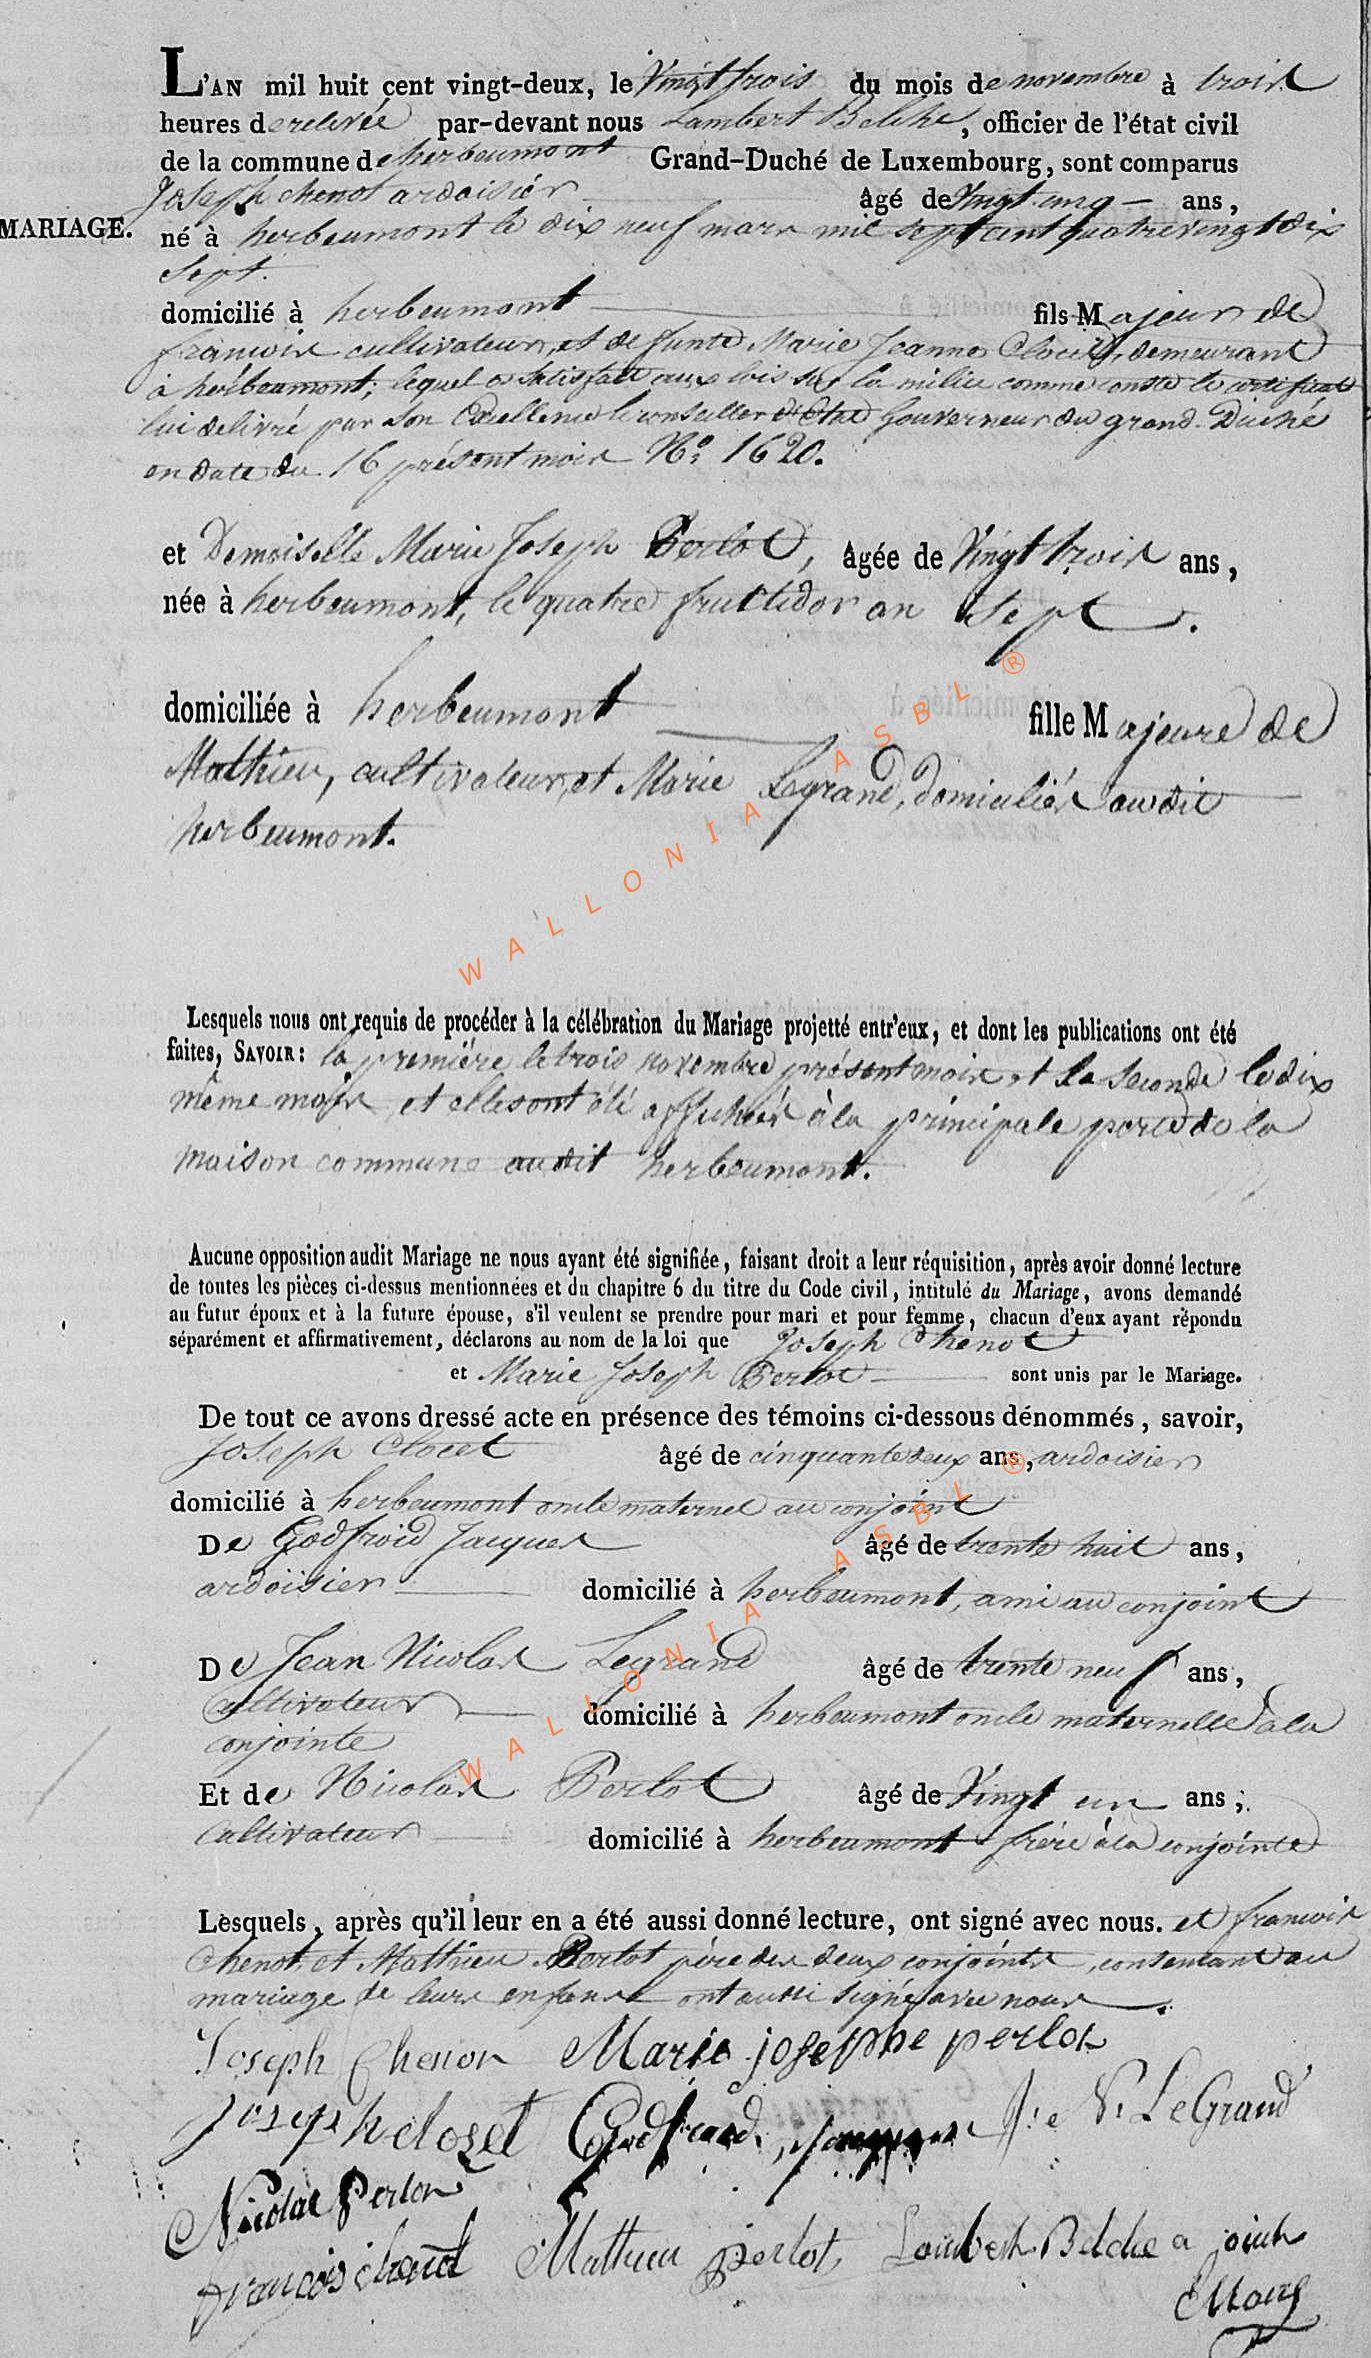 L'AN mil huit cent vingt-deux, le Vingt trois du mois de novembre à trois
heures de relevée par-devant nous Lambert Belche, officier de l'état civil
de la commune de herbeumont Grand-Duché de Luxembourg, sont comparus
Joseph chenot ardoisier âgé de Vingt cinq — ans,
MARIAGE.
né à herbeumont le dix neuf mars mil sept cent quatre vingt dix
sept.
domicilié à herbeumont fils Majeur de
francois cultivateur, et defunte Marie Jeanne Clocet, demeurant
à herbeumont; lequel a satisfait aux lois sur la milice comme conste le certificat
lui delivré par Son Excellence le conseiller d'Etat Gouverneur du grand-Duché
en date du 16 présent mois N.o 1620.
et Demoiselle Marie Joseph Perlot, âgée de Vingt trois ans,
née à herbeumont, le quatre fructidor an sept.
domiciliée à herbeumont fille Majeure de
Mathieu, cultivateur, et Marie Legrand, domiciliés audit
herbeumont.
Lesquels nous ont requis de procéder à la célébration du Mariage projetté entr'eux, et dont les publications ont été
faites, SAVOIR: la première le trois novembre présent mois et la seconde le dix
même mois et elles ont été affichées à la principale porte de la
maison commune audit herbeumont.
Aucune opposition audit Mariage ne nous ayant été signifiée, faisant droit a leur réquisition, après avoir donné lecture
de toutes les pièces ci-dessus mentionnées et du chapitre 6 du titre du Code civil, intitulé du Mariage, avons demandé
au futur époux et à la future épouse, s'il veulent se prendre pour mari et pour femme, chacun d'eux ayant répondu
séparément et affirmativement, déclarons au nom de la loi que Joseph Chenot
et Marie Joseph Perlot sont unis par le Mariage.
De tout ce avons dressé acte en présence des témoins ci-dessous dénommés, savoir,
Joseph Clocet âgé de cinquante deux ans, ardoisier
domicilié à herbeumont oncle maternel au conjoint
De Godfroid Jacques âgé de trente huit ans,
ardoisier domicilié à herbeumont, ami au conjoint
De Jean Nicolas Legrand âgé de trente neuf ans,
cultivateur domicilié à herbeumont oncle maternelle à la
conjointe
Et de Nicolas Perlot âgé de Vingt un ans;
cultivateur domicilié à herbeumont frére à la conjointe
Lesquels, après qu'il leur en a été aussi donné lecture, ont signé avec nous. et francois
Chenot, et Mathieu Perlot pére des deux conjoints, consentant au
mariage de leurs enfans ont aussi signé avec nous.
Joseph Chenot Marie josephe perlot
joseph closet Godfroid, jacques J:e N. LeGrand
Nicolas Perlot
françois chenot Mathieu perlot, Lambert Belche a joint
WALLONIA ASBL ®
WALLONIA ASBL ®